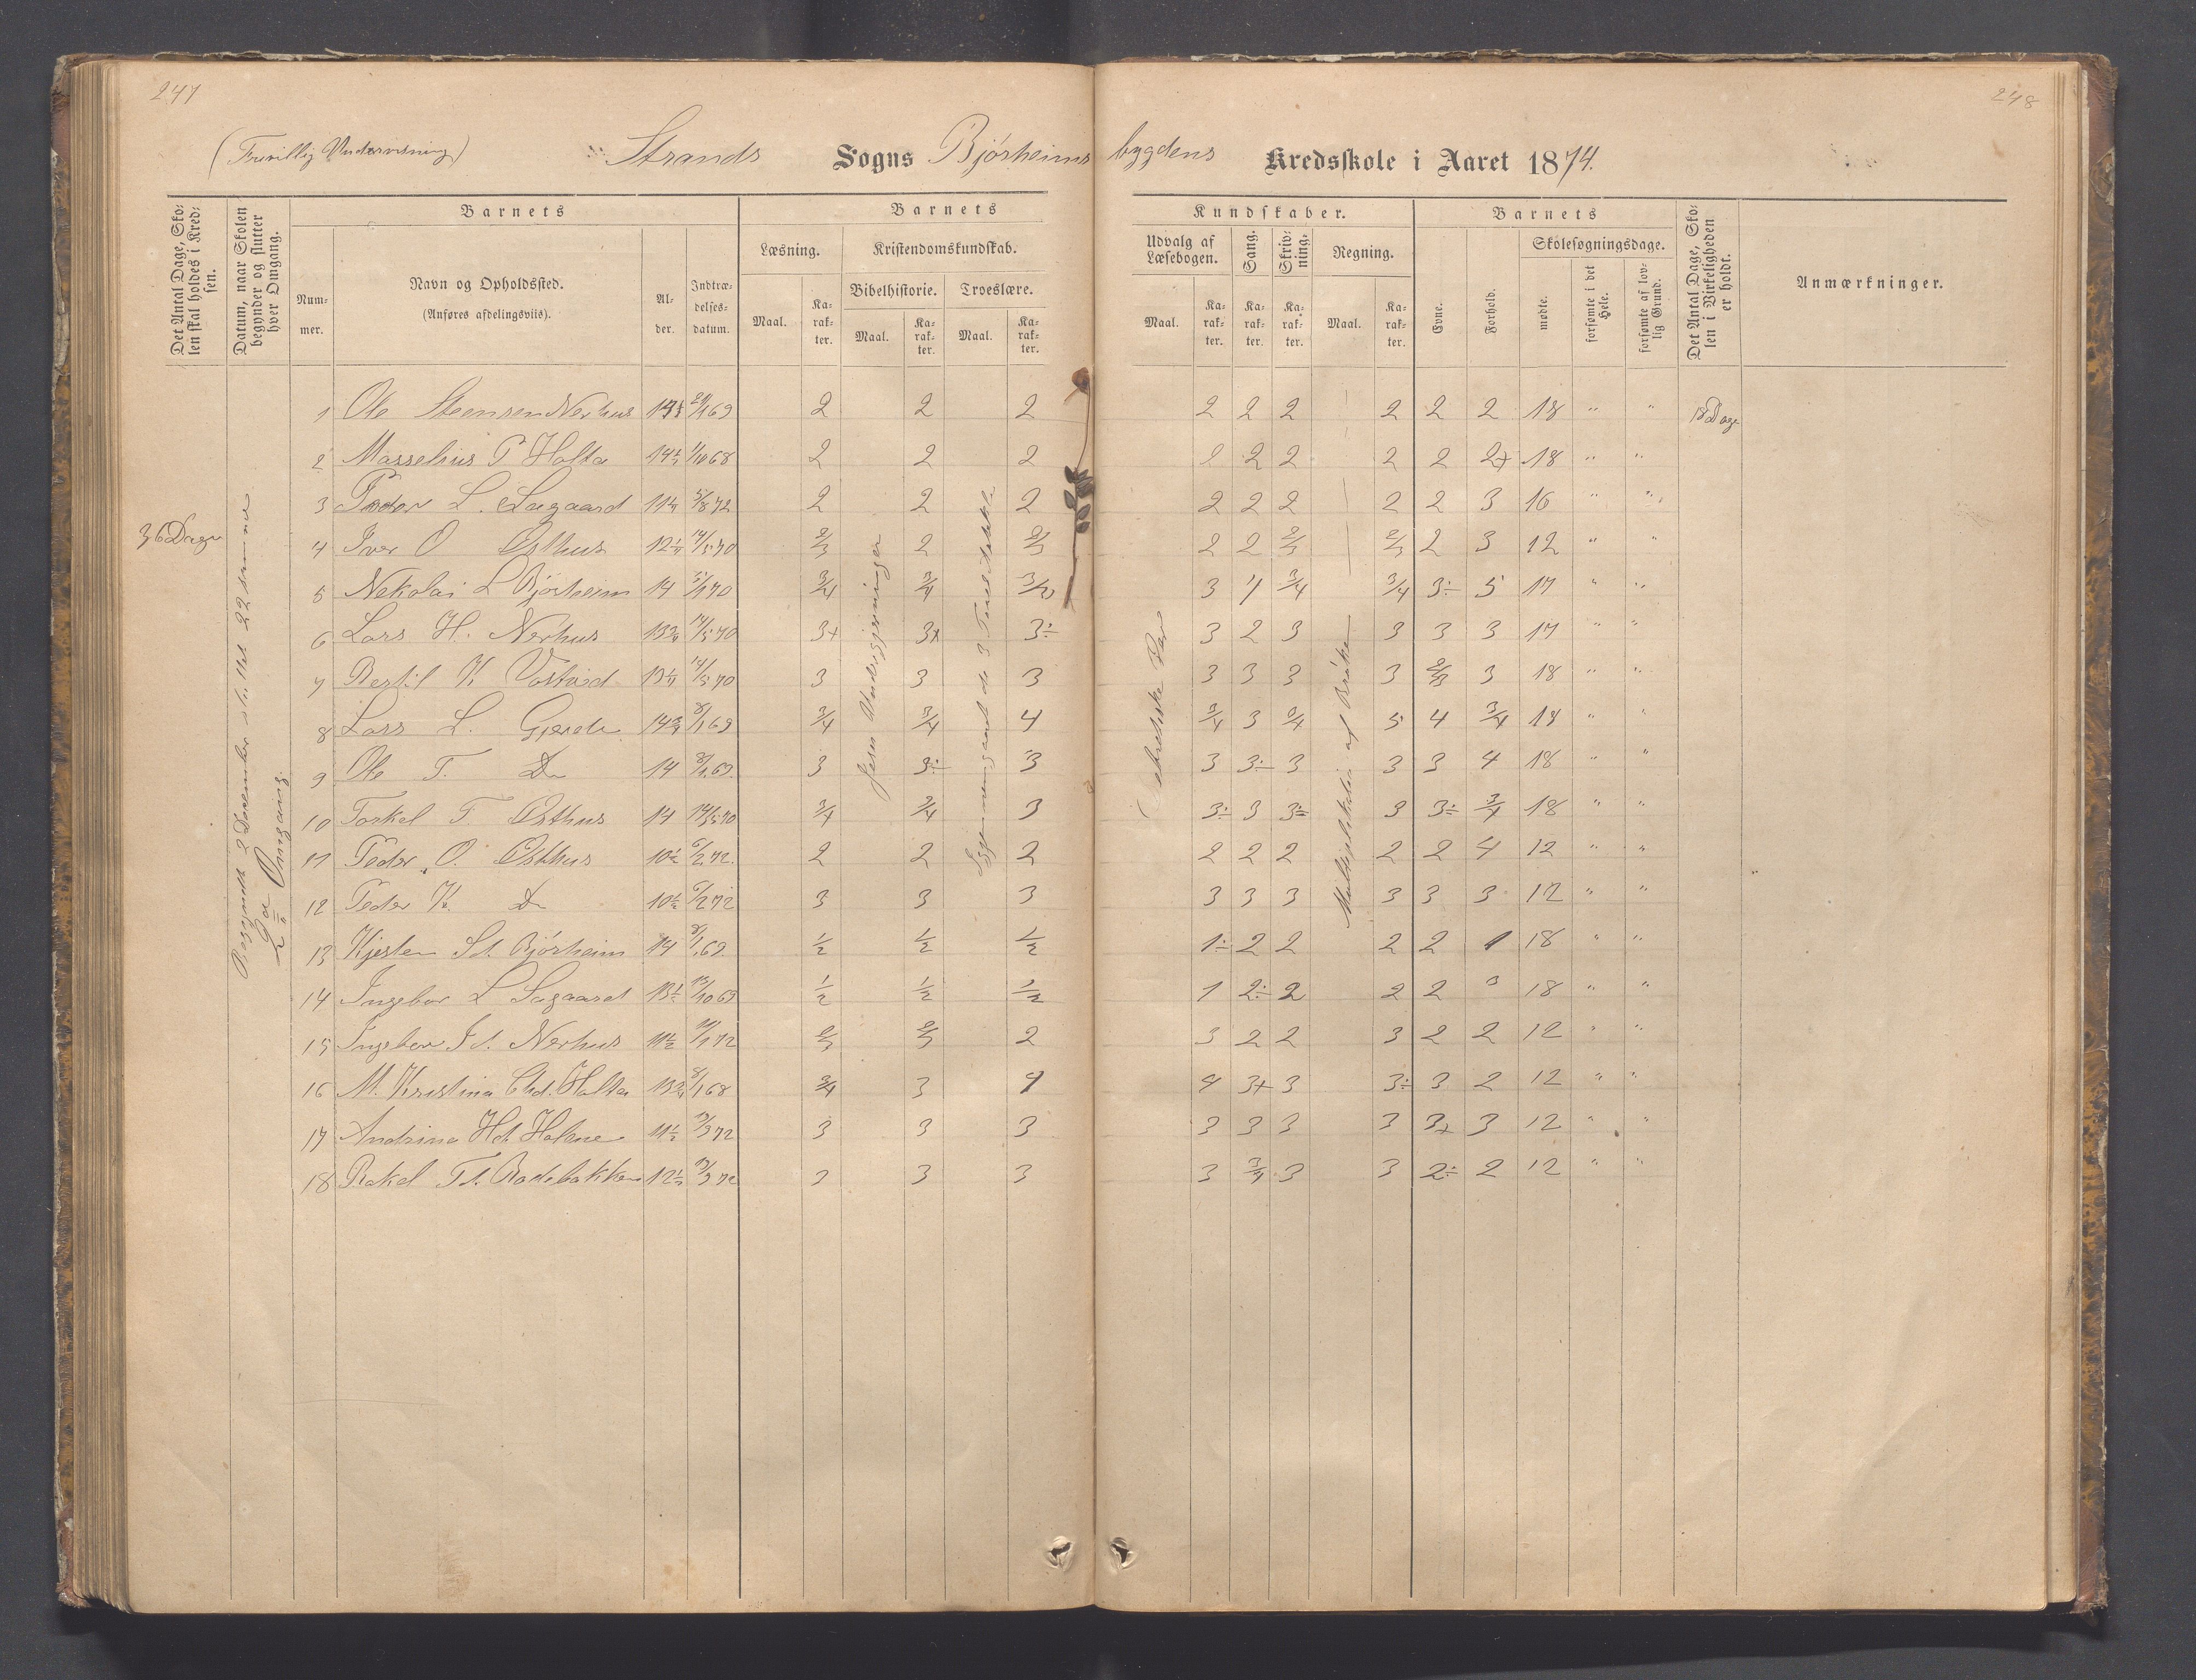 247
248
(Frivillig Undervisning) Strands Sogns Bjørheims bygdens Kredsskole i Aaret 1874.
Det Antal Dage, Skolen skal holdes i Kredsen.
Datum, naar Skolen begynder og slutter hver Omgang.
Barnets
Nummer.
Navn og Opholdssted.
(Anføres afdelingsviis).
Alder.
Indtrædelsesdatum.
Barnets
Læsning.
Maal.
Karakter.
Kristendomskundskab.
Bibelhistorie.
Maal.
Karakter.
Troeslære.
Maal.
Karakter.
Kundskaber.
Udvalg af Læsebogen.
Maal.
Karakter.
Sang.
Karakter.
Skrivning.
Karakter.
Regning.
Maal.
Karakter.
Barnets
Evne.
Forhold.
Skolesøgningsdage.
mødte.
forsømte i det Hele.
forsømte af lovlig Grund.
Det Antal Dage, Skolen i Virkeligheden er holdt.
Anmærkninger.
36 Dage
2den Omgang.
Jesu Undergjerninger
Multiplikation af Brøker
18 Dage
1 Ole Steensen Nerhus 2 2 2 2 2 2 2 2 2 18 " "
2 Masselius P Holta 14½ 1/10 68 2 2 2 2 2 2 2 2 2+ 18 " "
3 Peder L. Lagaard 11½ 5/8 72 2 2 2 2 2 2 2 2 3 16 " "
4 Iver O Østhus 12½ 14/5 70 2/3 2 2/3 2 2 2/3 2/3 2 3 12 " "
5 Nekolai L Bjørheim 14 5/1 70 3/4 3/4 3 3/4 3/4 3÷ 5 17 " "
6 Lars H. Nerhus 14/5 70 3+ 3+ 3÷ 3 2 3 3 3 3 17 " "
7 Bertil K Vostad 13½ 14/5 70 3 3 3 3 3 3 3 2/3 3 18 " "
8 Lars L. Gjerde 14¾ 8/1 69 3/4 3/4 4 3/4 3 3/4 5 4 3/4 18 " "
9 Ole T. Do 14 8/1 69 3 3÷ 3 3 3÷ 3 3 3 4 18 " "
10 Torkel T Østhus 14 14/5 70 3/4 3/4 3 3÷ 3 3÷ 3 3÷ 3/4 18 " "
11 Peder O. Østhus 10½ 6/2 72 2 2 2 2 2 2 2 2 4 12 " "
12 Peder K. Do 10½ 6/2 72 3 3 3 3 3 3 3 3 3 12 " "
13 Kjesten Sd. Bjørheim 14 8/1 69 1/2 1/2 1/2 1÷ 2 2 2 2 1 18 " "
14 Ingebor L Lagaard 13½ 13/10 69 1/2 1/2 1/2 1 2÷ 2 2 2 3 18 " "
15 Ingebor Id. Nerhus 11½ 2/3 2/3 2 3 2 2 3 2 2 12 " "
16 M. Kristina Chd. Holta 8/1 68 3/4 3 4 4 3+ 3 3÷ 3 2 12 " "
17 Andrina Hd. Holane 11½ 13/3 72 3 3 3 3 3 3 3 3+ 3 12 " "
18 Rakel Td. Rodebakken 12½ 13/3 72 3 3 3 3 3/4 3 3 2÷ 2 12 " "